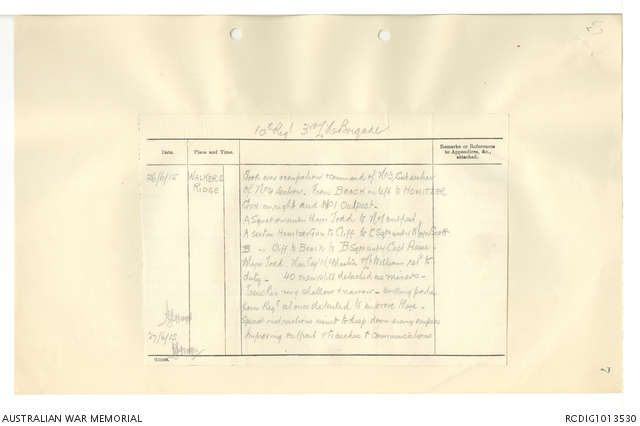 10th Regt 3rd L H Brigade
Date.
Place and Time.
Remarks or References to Appendices, &c., attached.
26/6/15
WALKERS RIDGE
Took over occupation & command of No 3 Subsection
of No 4 Section. From BEACH on left to HOWITZER
GUN on right and No 1 Outpost.
A Squadron under Major Todd to No 1 outpost
A section Howitzer Gun to Cliff to C Sqn under Major Scott
B " Cliff to Beach to B Sqn under Capt
Major Todd. Lieut & ret to
duty - 40 men still detached as miners -
Trenches very shallow & narrow - working parties
from Regt at once detailed to improve these.
Special instructions issued to keep down enemy snipers
27/6/15
Improving outpost & trenches & communications
AUSTRALIAN WAR MEMORIAL
RCDIG1013530